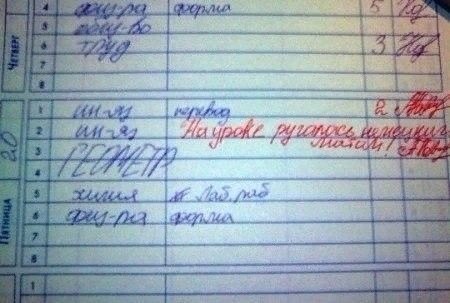 ЧЕТВЕРГ
4 физ-ра форма 5
5 общ-во
6 труд 3
7
8
20
ПЯТНИЦА
1 ин-яз перевод 2
2 ин-яз На уроке ругалась немецким
3 ГЕОМЕТР матом!
4
5 химия Лаб. раб
6 физ-ра форма
7
8
1